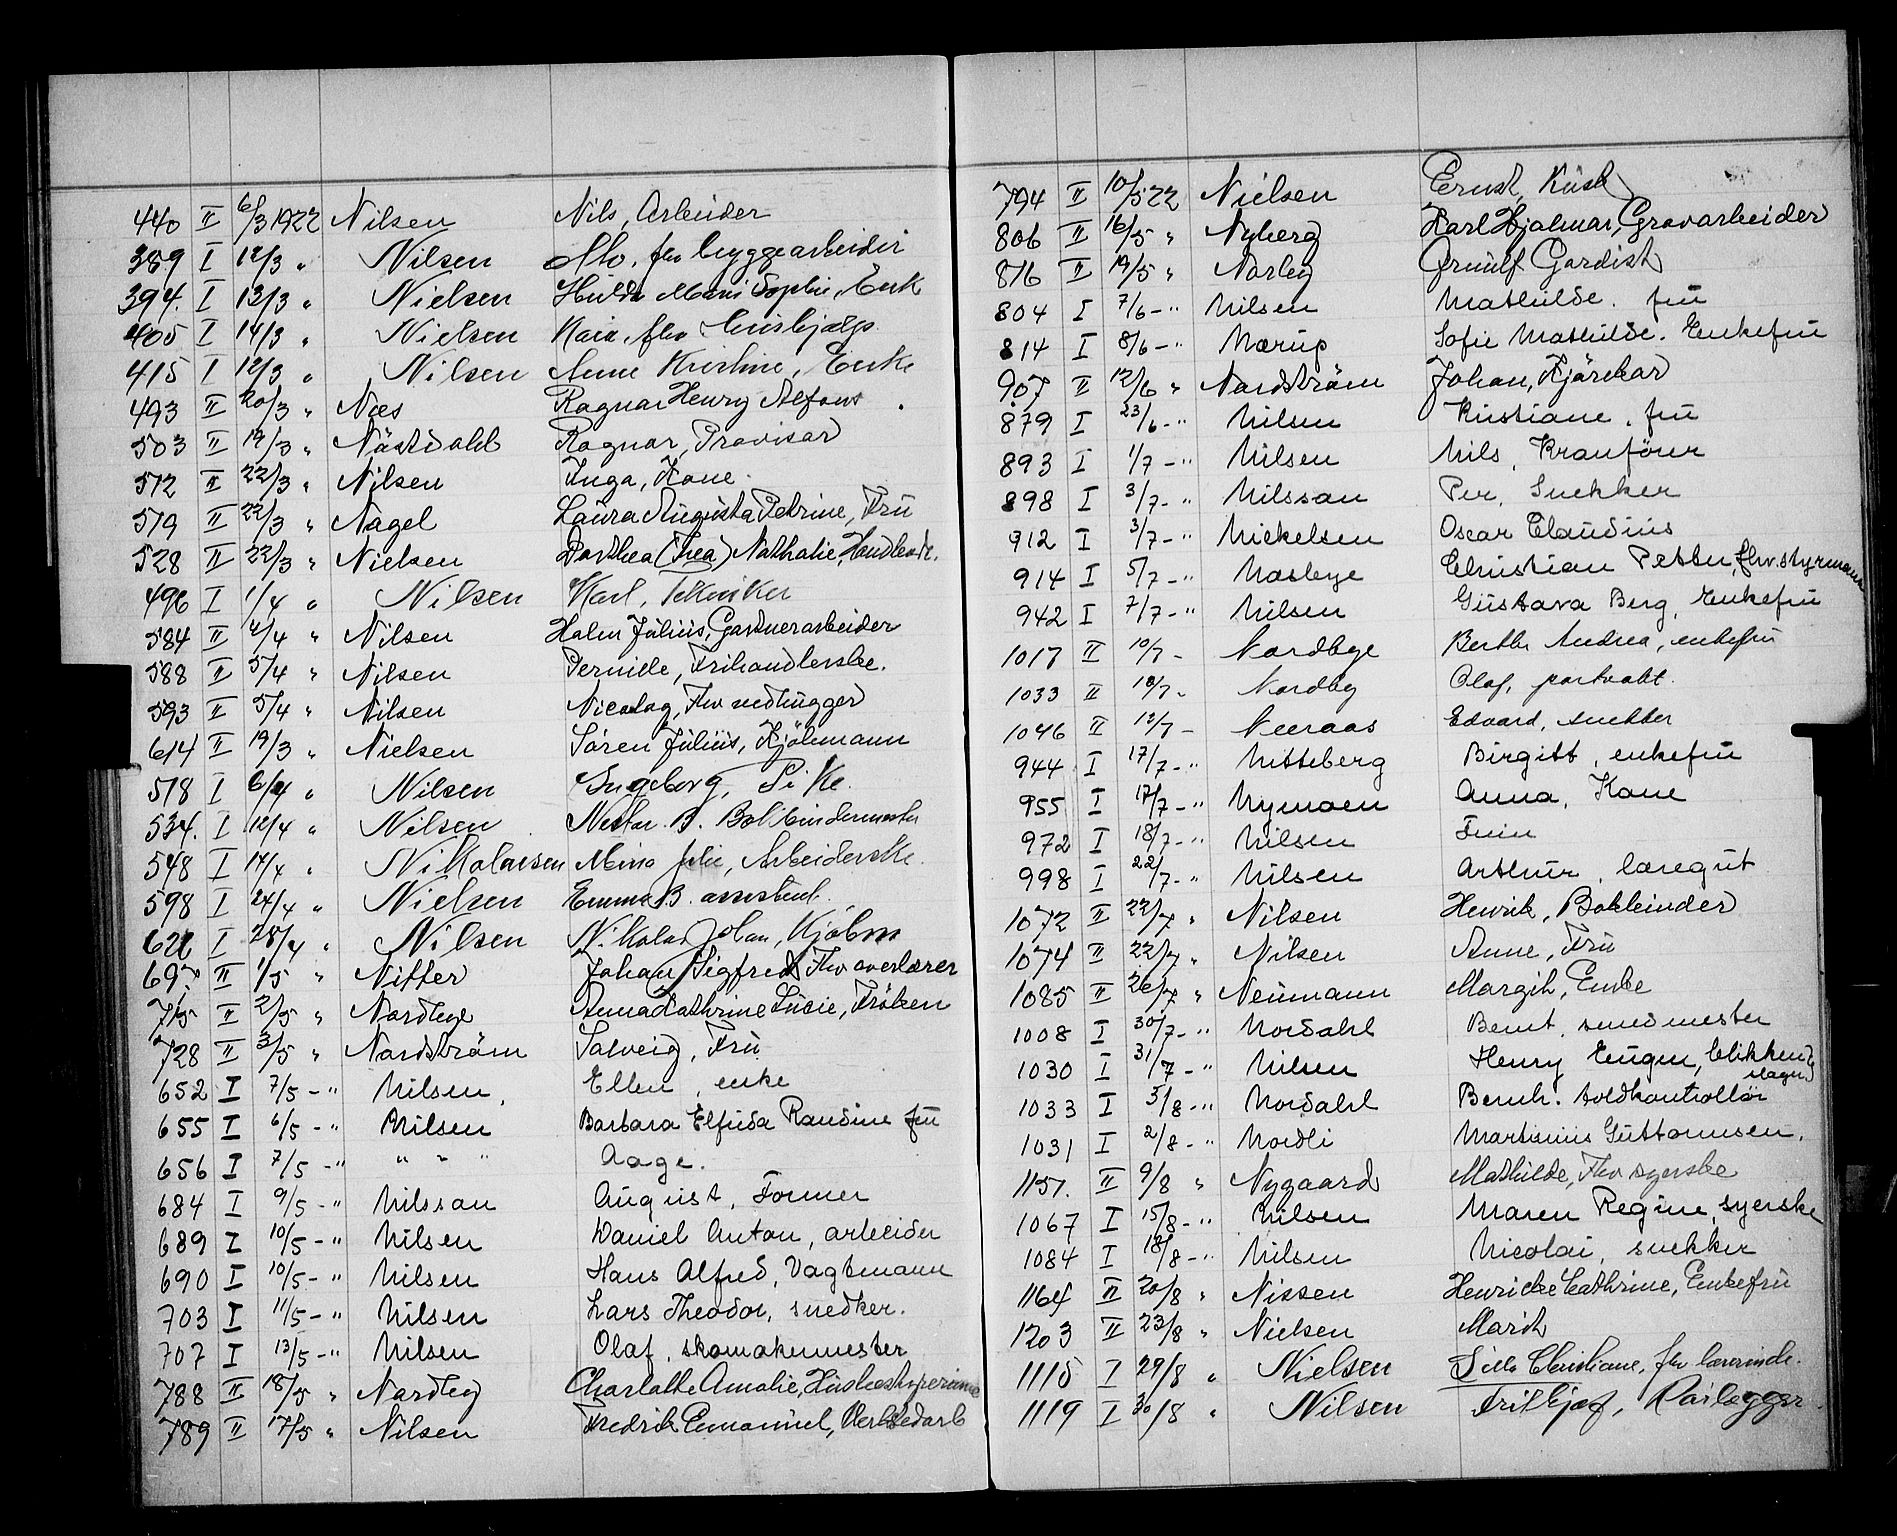 440 II 6/3 1922 Nilsen Nils, Arbeider
389 I 12/3 " Nilsen Olo, fhv bryggearbeider
394. I 13/3 " Nielsen Hulda Marie Sophie, Enk
405 I 14/3 " Nielsen Kaia, fhv
415 I 12/3 " Nilsen Anne Kristine, Enke
493 II 20/3 " Næs Ragnar Henry Alfons
503 II 19/3 " Nästdahl Ragnar, Provisor
512 II 22/3 " Nilsen Inga, Kone.
519 II 22/3 " Nagel Laura Augusta Petrine, Frü
528 II 22/3 " Nielsen Dorthea (Thea) Nathalie, Handlende.
496 I 1/4 " Nilsen Karl, Tekniker
584 II 4/4 " Nilsen Halm Julius, Gartnerarbeider
588 II 5/4 " Nilsen Pernille, Frihandlerske.
593 II 5/4 " Nilsen Nicolay, Fhv vedhugger
614 II 19/3 " Nielsen Sören Julius, Kjöbmann
518 I 6/4 " Nilsen Ingeborg, Pike
534. I 12/4 " Nilsen Nestor. B. Bokbindermester
548 I 14/4 " Nikolaisen Mina Julie, Arbeiderske.
598 I 24/4 " Nielsen Emma B. assistent.
622 I 28/4 " Nilsen Nikolai Johan, Kjöbm
697 II 1/5 " Nitter Johan Sigfred Fhv overlærer
715 II 2/5 " Nordbye Anna Cathrine Lucie, Fröken
728 II 3/5 " Nordström Solveig, Frü
652 I 7/5 - " Nilsen, Ellen, enke
655 I 6/5 - " Nilsen Barbara Elfrida Randine frü
656 I 7/5 - " " " " Aage.
684 I 9/5 - " Nilsson August, Former
689 I 10/5 - " Nilsen Daniel Anton, arbeider
690 I 10/5 - " Nilsen Hans Alfred, Vagtmann
703 I 11/5 - " Nilsen Lars Theodor, snedker.
707 I 13/5 - " Nilsen Olaf, skomakermester
788 II 18/5 " Nordby Charlotte Amalie, Husbestyrerinne
789 II 17/5 " Nilsen Fredrik Emanuel, Verkstedarb
794 II 10/5 22 Nielsen Ernst, Kusk
806 II 16/5 " Nyberg Karl Hjalmar, Gravarbeider
816 II 19/5 " Norby Ørnulf Gardist
804 I 7/6 - " Nilsen Mathilde. frü
814 I 8/6 - " Nørup Sofie Mathilde. Enkefrü
907 II 12/6 " Nordström Johan, Kjörekar
879 I 23/6 - " Nilsen Kristiane, frü
893 I 1/7 - " Nilsen Nils, Kranförer
898 I 3/7 - " Nilsson Per, Snekker
912 I 3/7 - " Nickelsen Oscar Claudius
914 I 5/7 - " Næsbye Christian Petter, fhv. styrmann
942 I 7/7 - " Nilsen Güstava Berg, Enkefrü
1017 II 10/7 - Nordbye Berthe Andrea, enkefrü
1033 II 18/7 " Nordby Olaf, portvakt.
1046 II 12/7 - Neeraas Edvard, snekker
944 I 17/7 - " Nitteberg Birgitt, enkefrü
955 I 17/7 - " Nymoen Anna, Kone
972 I 18/7 - " Nilsen Finn
998 I 22/7 - " Nilsen Arthur, læregüt
1072 II 22/7 " Nilsen Henrik, Bokbinder
1074 II 22/7 " Nilsen Anne, Frü
1085 II 26/7 " Neümann Margit, Enke
1008 I 30/7 - " Nordahl Bernt, smedmester
1030 I 31/7 - " Nilsen Henry Eugen, blikken
slager
1033 I 3/8 - " Nordahl Bernh. toldkontrollör
1031 I 2/8 - " Nordli Martinius Güttormsen.
1151. II 9/8 " Nygaard Mathilde, Fhv syerske
1067 I 15/8 - " Nilsen Maren Regine, syerske
1084 I 18/8 - " Nilsen Nicolai, snekker
1164 II 20/8 " Nissen Henricke Cathrine, Enkefrü
1203 II 23/8 " Nielsen Marit
1115 I 29/8 " Nielsen Christiane, fhv lærerinde.
1119 I 30/8 " Nilsen Fritbjof, Rørlegger.